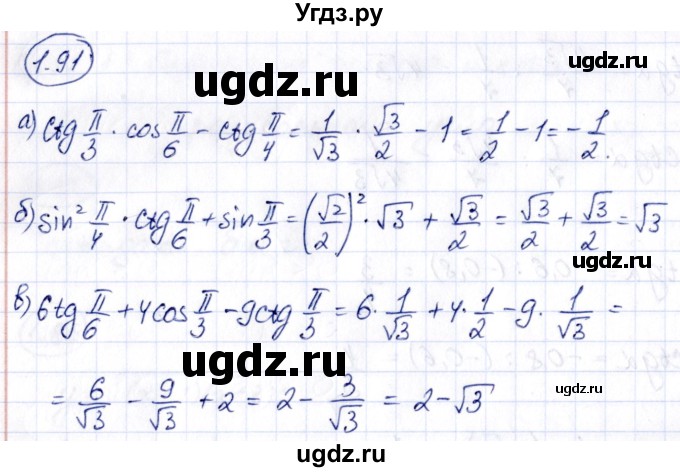 Угдз.ру
1.91
ugdz.ru
ugdz.ru
а) ctg π/3 · cos π/6 − ctg π/4 = 1/√3 · √3/2 − 1 = 1/2 − 1 = −1/2.
ugdz.ru
б) sin² π/4 · ctg π/6 + sin π/3 = (√2/2)² · √3 + √3/2 = √3/2 + √3/2 = √3
ugdz.ru
в) 6tg π/6 + 4cos π/3 − 9ctg π/3 = 6 · 1/√3 + 4 · 1/2 − 9 · 1/√3 =
ugdz.ru
ugdz.ru
= 6/√3 − 9/√3 + 2 = 2 − 3/√3 = 2 − √3
ugdz.ru
ugdz.ru